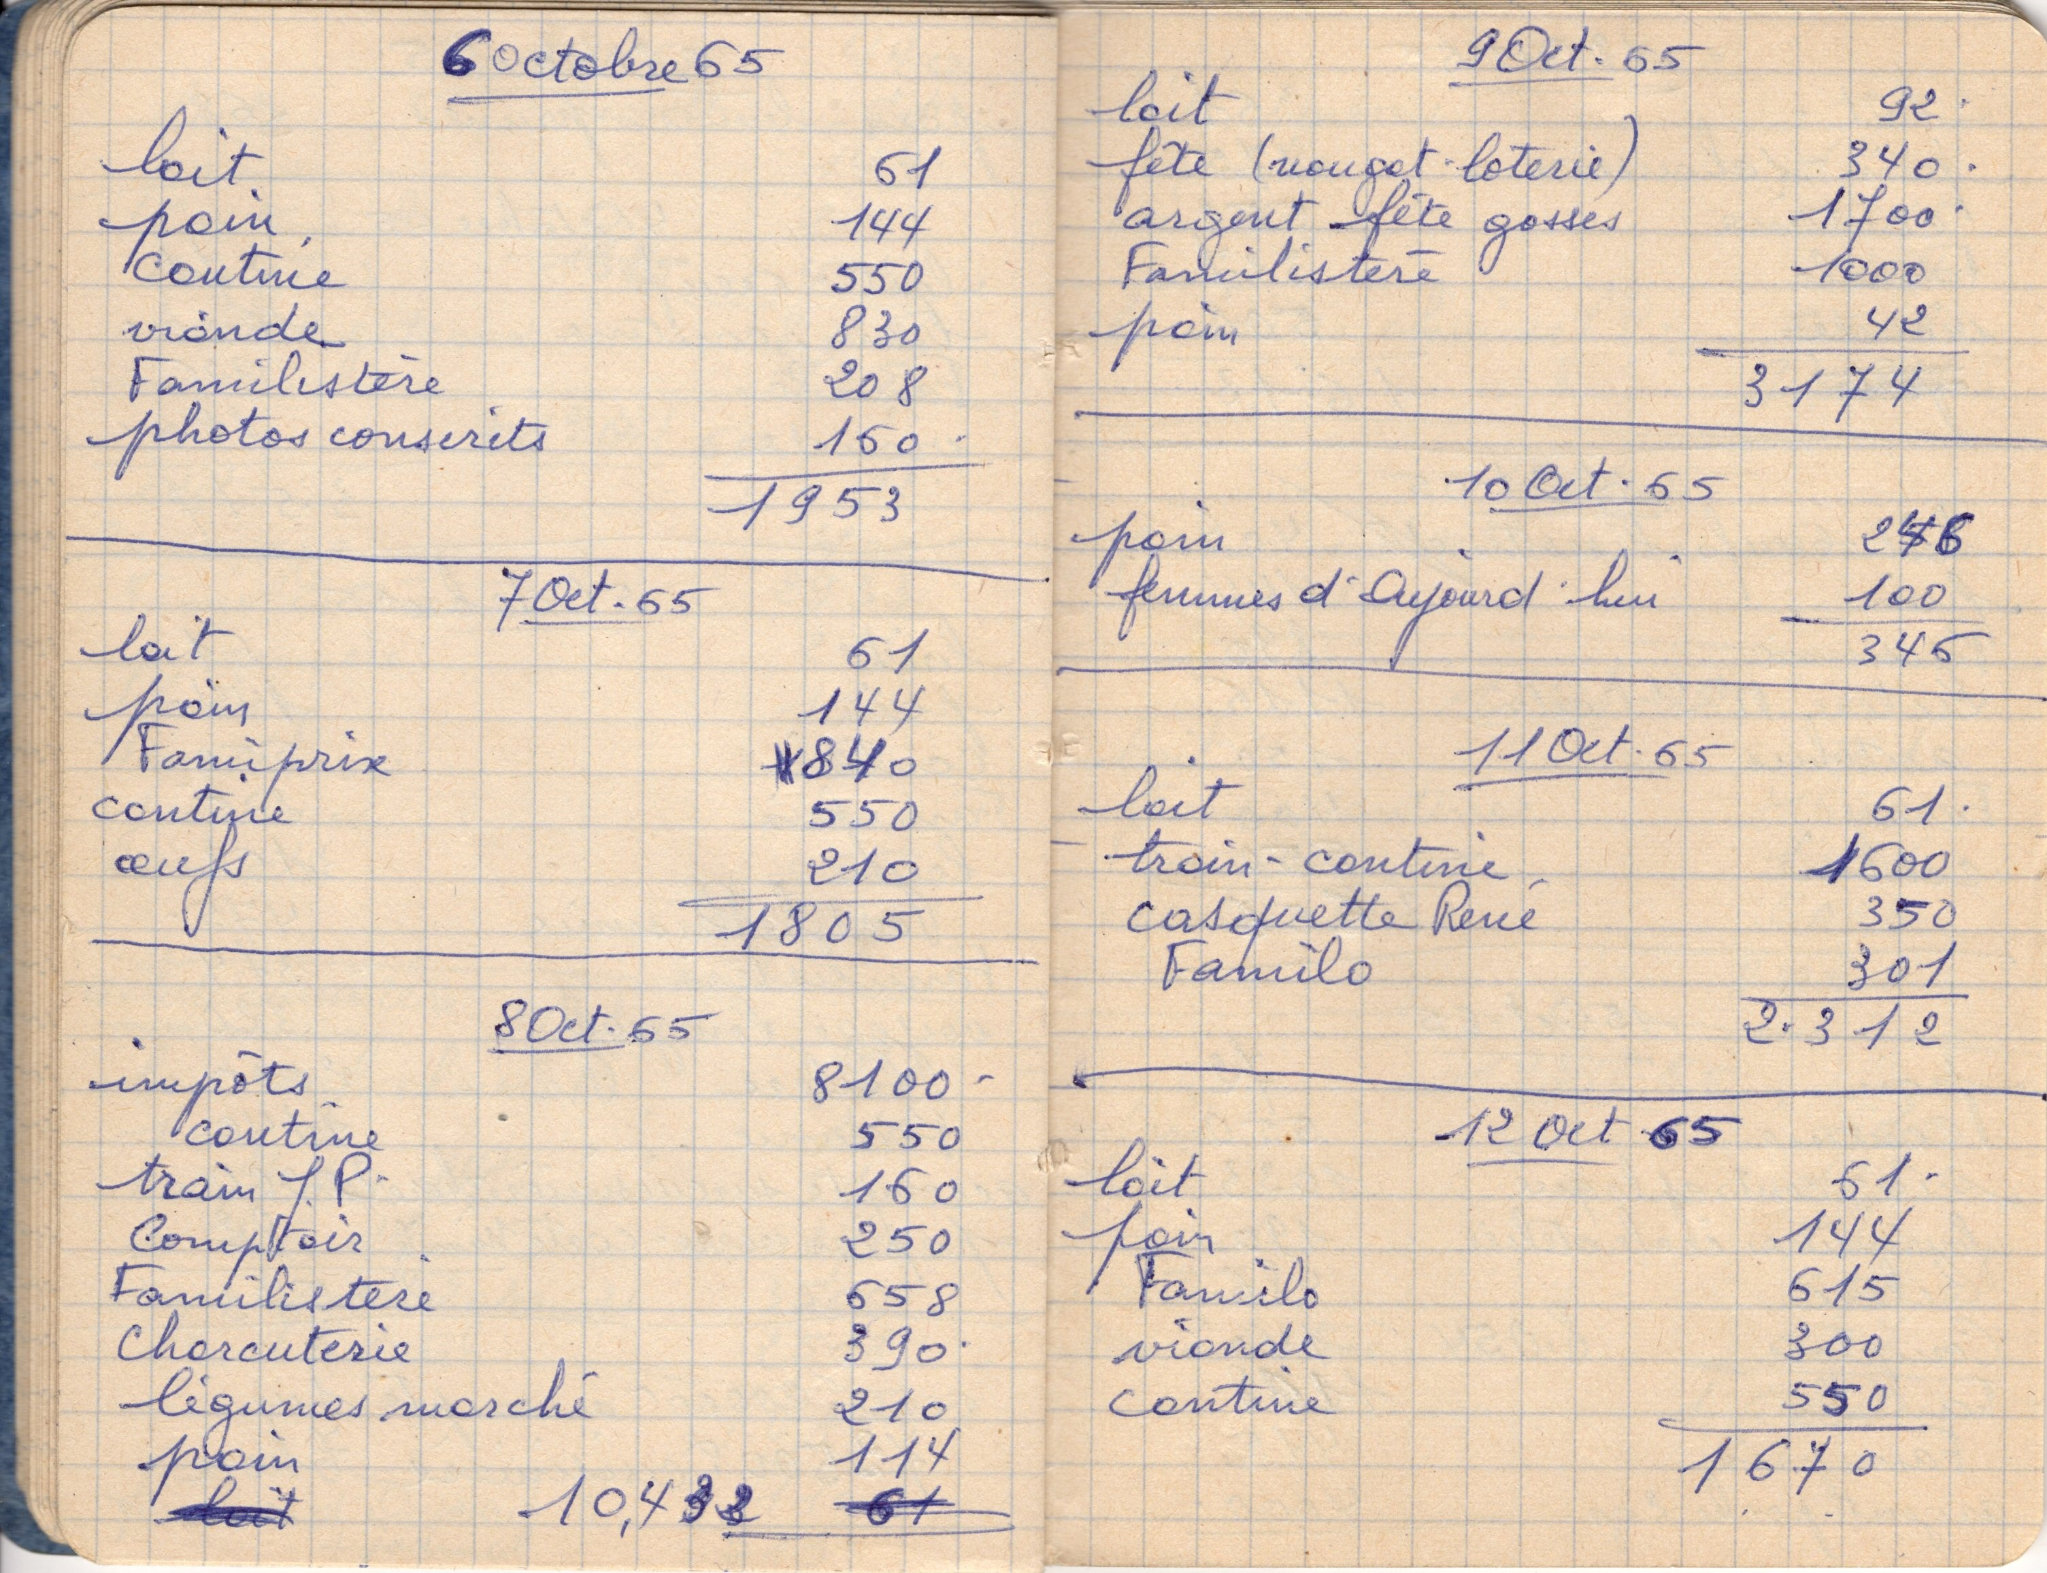 6 octobre 65
lait 61
pain 144
cantine 550
viande 830
Familistère 208
photos conscrits 160
1953
7 Oct. 65
lait 61
pain 144
Famiprix 840
cantine 550
œufs 210
1805
8 Oct. 65
impôts 8100
cantine 550
train J.P. 160
Comptoir 250
Familistère 658
Charcuterie 390
légumes marché 210
pain 114
lait 10,432 61
9 Oct. 65
lait 92
fête (nougat-loterie) 340
argent fête gosses 1700
Familistère 1000
pain 42
3174
10 Oct. 65
pain 246
femmes d'Aujourd'hui 100
346
11 Oct. 65
lait 61
train-cantine 1600
casquette René 350
Familo 301
2.312
12 Oct 65
lait 61
pain 144
Familo 615
viande 300
cantine 550
1670